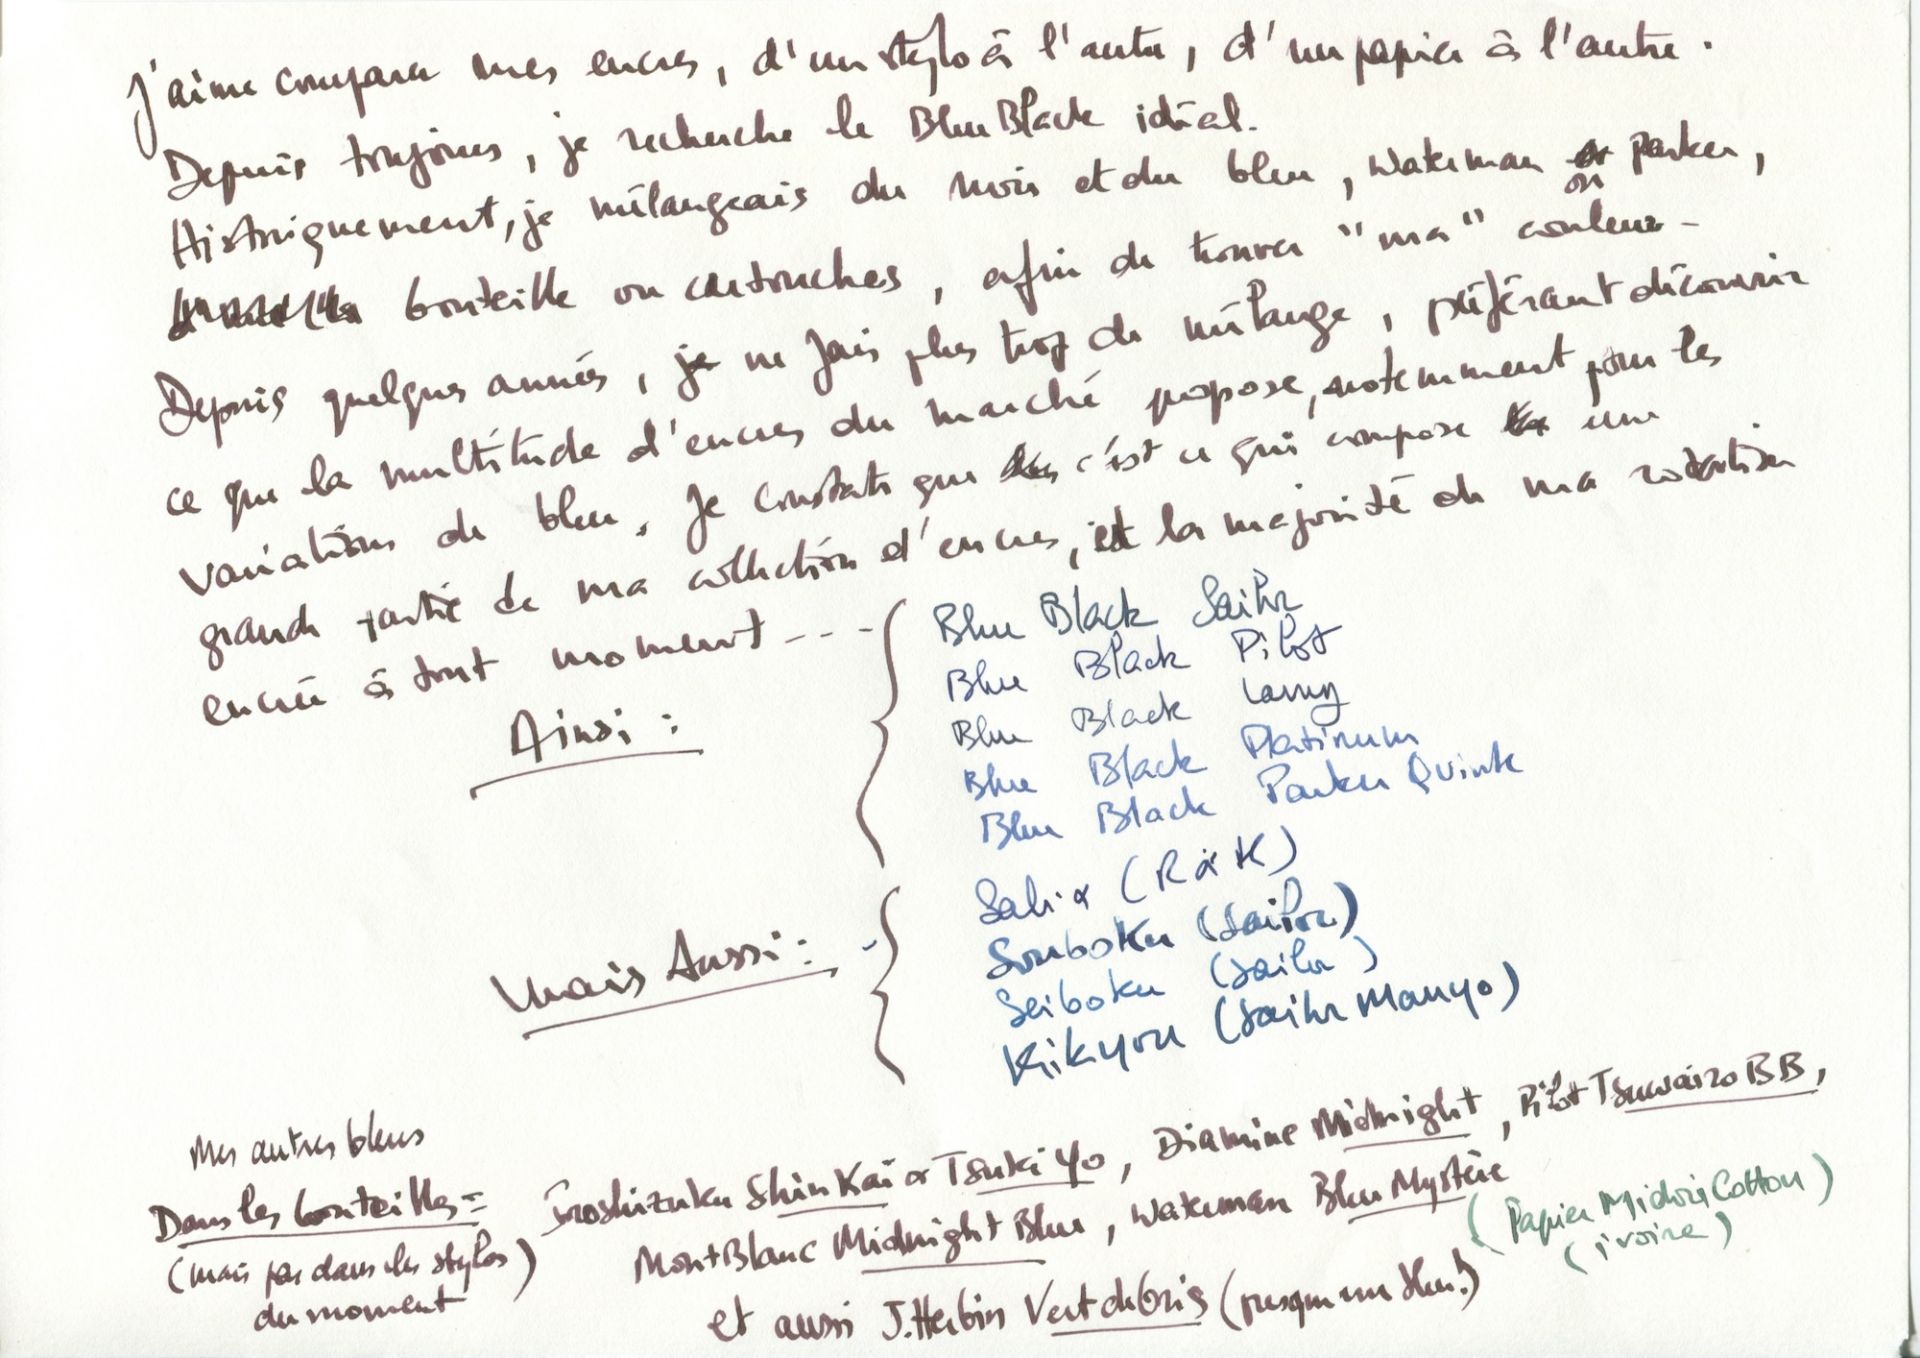 J'aime comparer mes encres, d'un stylo à l'autre, d'un papier à l'autre.
Depuis toujours, je recherche le Blue Black idéal.
Historiquement, je mélangeais du noir et du bleu, Waterman ou Parker,
bouteille ou cartouches, afin de trouver "ma" couleur -
Depuis quelques années, je ne fais plus trop de mélange, préférant découvrir
ce que la multitude d'encres du marché propose, notemment pour les
variations de bleu. Je constate que c'est ce qui compose une
grande partie de ma collection d'encres, et la majorité de ma rotation
encrée à tout moment - - -
Ainsi :
Blue Black Sailor
Blue Black Pilot
Blue Black Lamy
Blue Black Platinum
Blue Black Parker Quink
Mais Aussi :
Salix (R&K)
Souboku (Sailor)
Seiboku (Sailor)
Kikyou (Sailor Manyo)
Mes autres bleus
Dans les bouteilles =
(mais pas dans les stylos)
du moment
Iroshizuku Shin Kai & Tsuki Yo, Diamine Midnight, Pilot Tsuwairo BB,
MontBlanc Midnight Blue, Waterman Bleu Mystère
et aussi J.Herbin Vert de Gris (presque un bleu!)
(Papier Midori Cotton)
(ivoire)